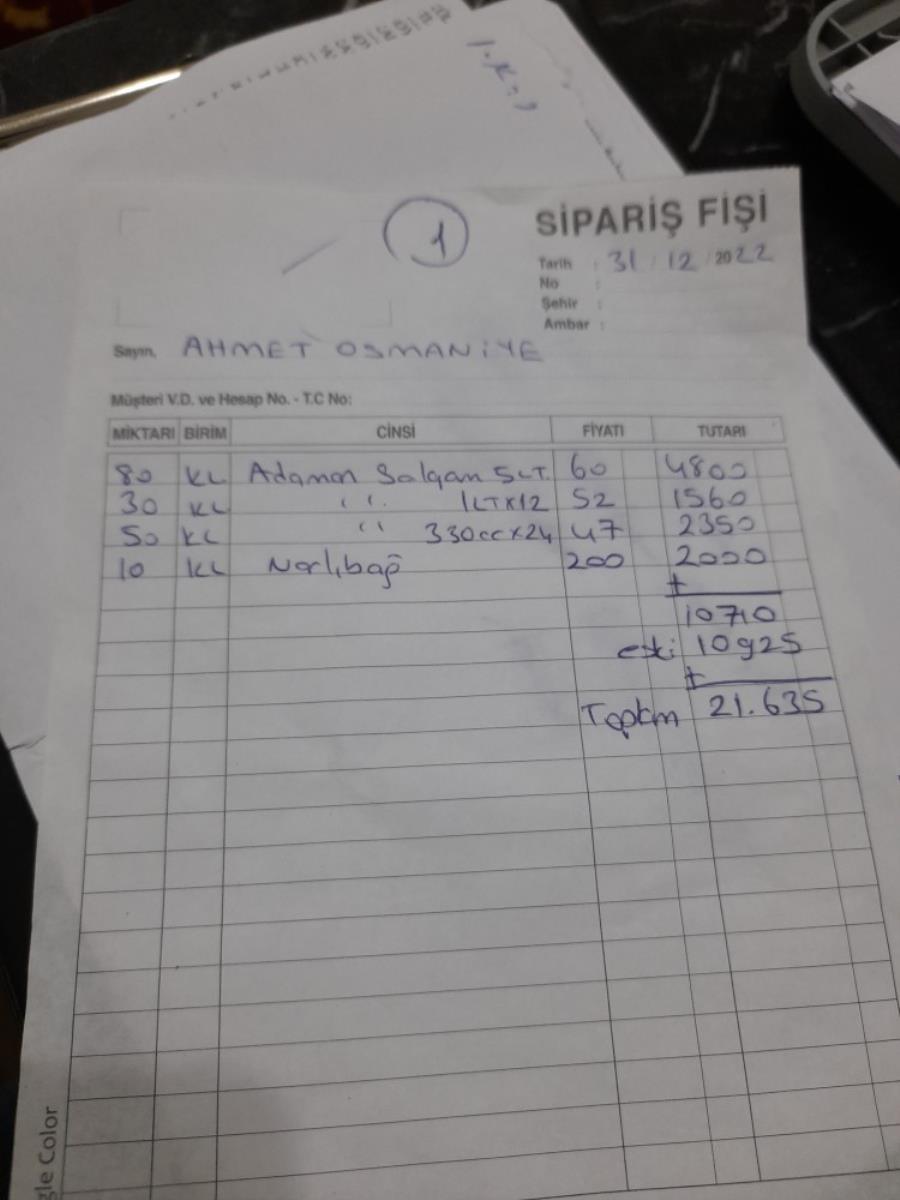 1
SİPARİŞ FİŞİ
Tarih : 31 / 12 / 2022
No :
Şehir :
Ambar :
Sayın, AHMET OSMANİYE
Müşteri V.D. ve Hesap No. - T.C No:
MİKTARI BİRİM CİNSİ FİYATI TUTARI
80 KL Adaman Şalgam 5 LT. 60 4800
30 KL " 1LTX12 52 1560
50 KL " 330ccx24 47 2350
10 KL Narlıbağ 200 2000
+
10710
eski 10925
+
Toplam 21.635
gle Color